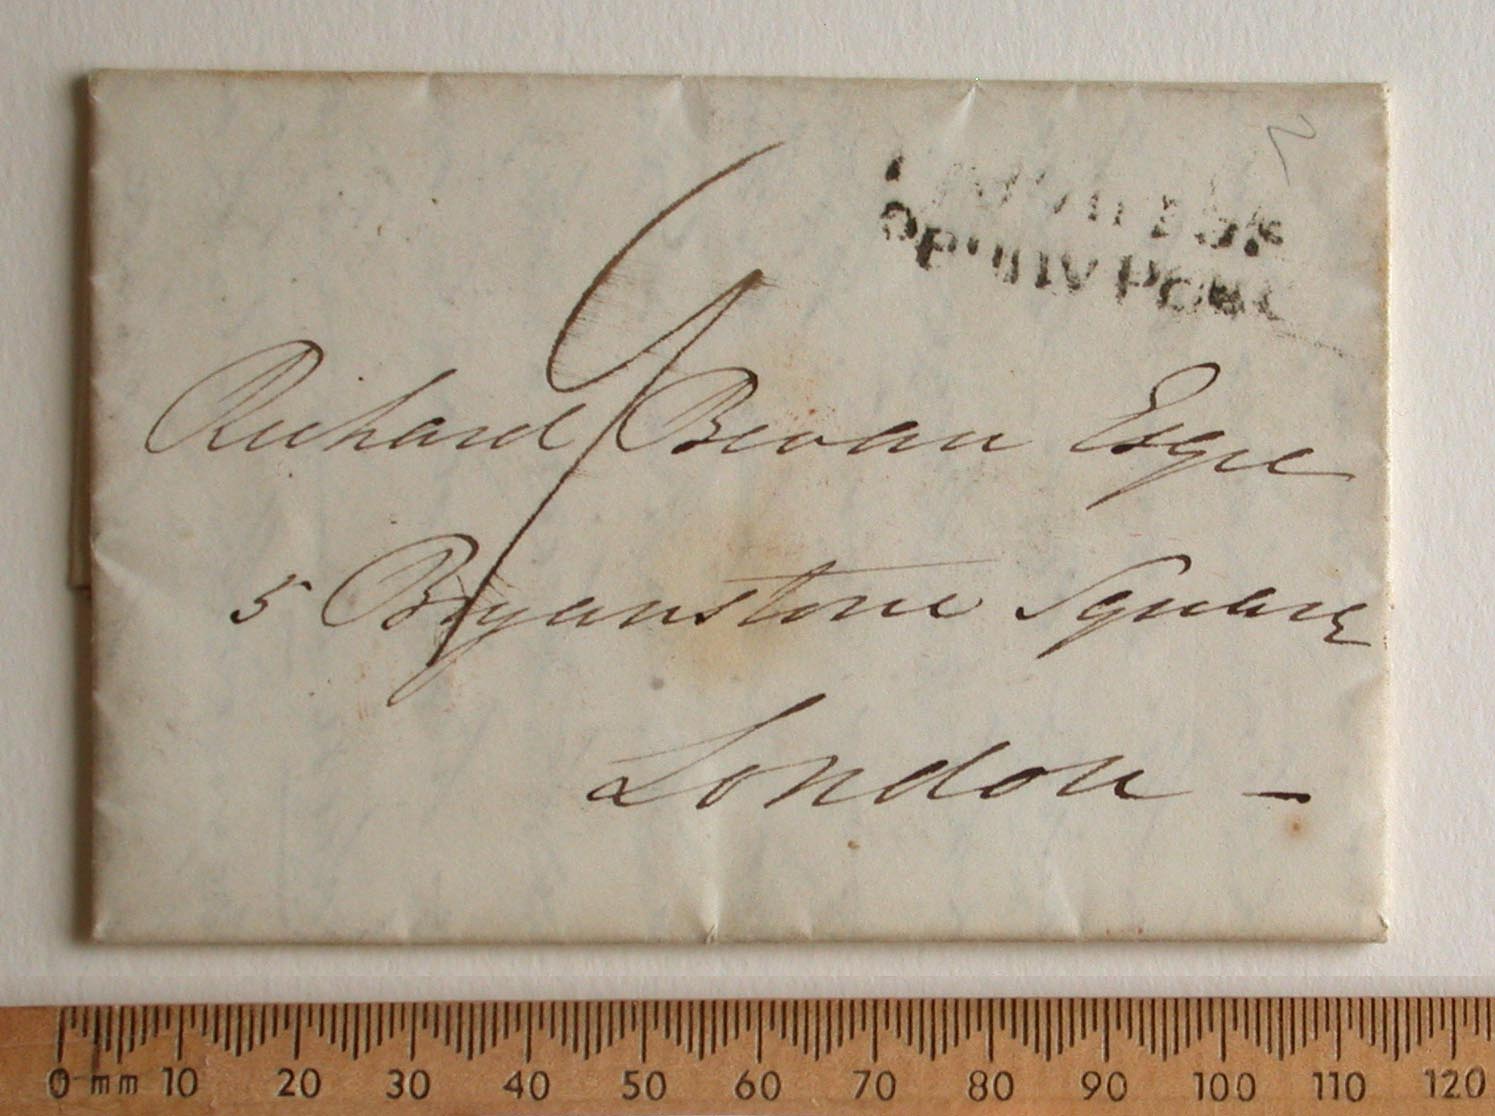 Penny Post
Richard Bevan Esqre
5 Bryanstone Square
London –
0 mm 10 20 30 40 50 60 70 80 90 100 110 120